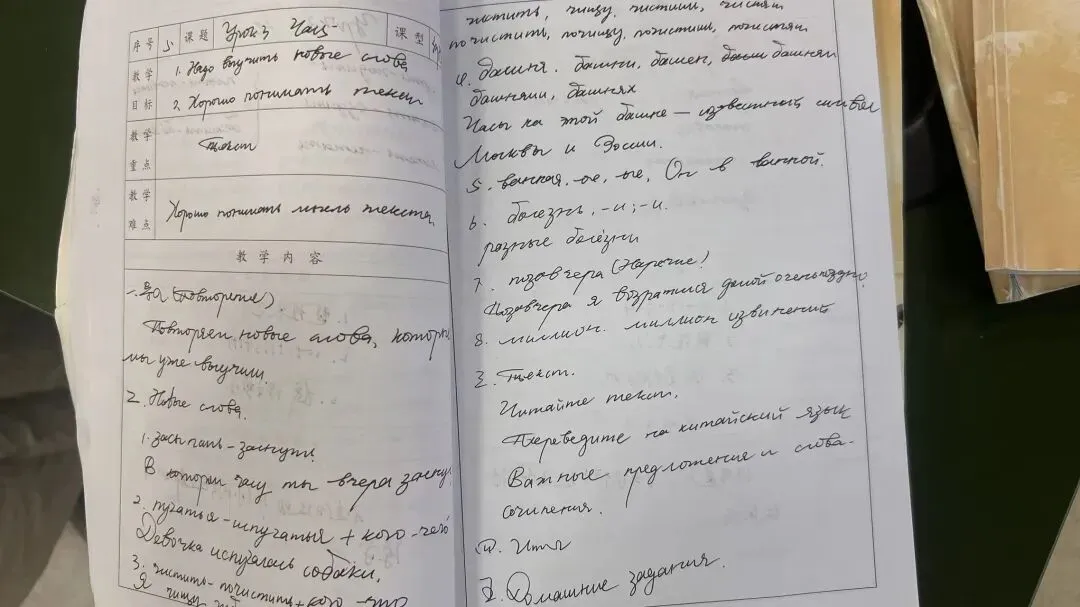 序号 5 课题 Урок 3 Часы 课型
教学目标 1. Надо выучить новые слова
2. Хорошо понимать текст
教学重点 Текст
教学难点 Хорошо понимать мысль текста.
教学内容
(повторение)
Повторяем новые слова, которы
мы уже выучили.
2. Новые слова.
1. засыпать – заснуть.
В котором часу ты вчера заснул
2. пугаться – испугаться + кого-чего
Девочка испугалась собаки.
3. чистить – почистить + кого-что
Я чищу
чистить, чищу, чистишь, чистят
почистить, почищу, почистишь, почистят
4. башня. башни, башен, башням
башнями, башнях
Часы на этой башне – известный символ
Москвы и России.
5. ванная, -ое, -ые, Он в ванной.
6. болезнь, -и; -и.
разные болезни
7. позавчера (Наречие)
Позавчера я возратился домой очень поздно.
8. миллион. миллион извинений
3. Текст.
Читайте текст.
Переведите на китайский язык
Важные предложения и слова-
сочинения.
Домашние задания.